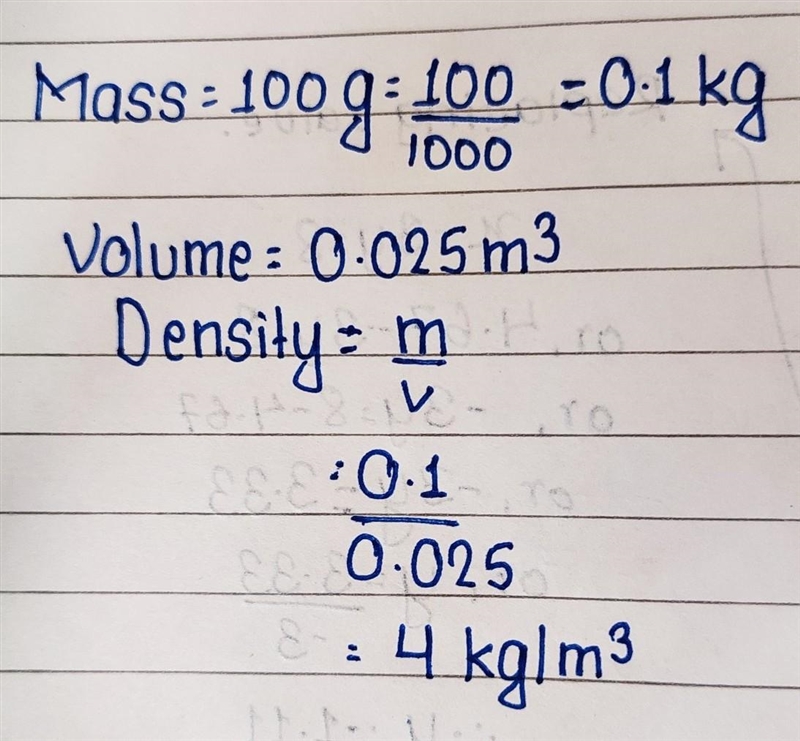 Mass = 100 g = 100/1000 = 0.1 kg
Volume = 0.025 m³
Density = m/v
= 0.1/0.025
= 4 kg/m³